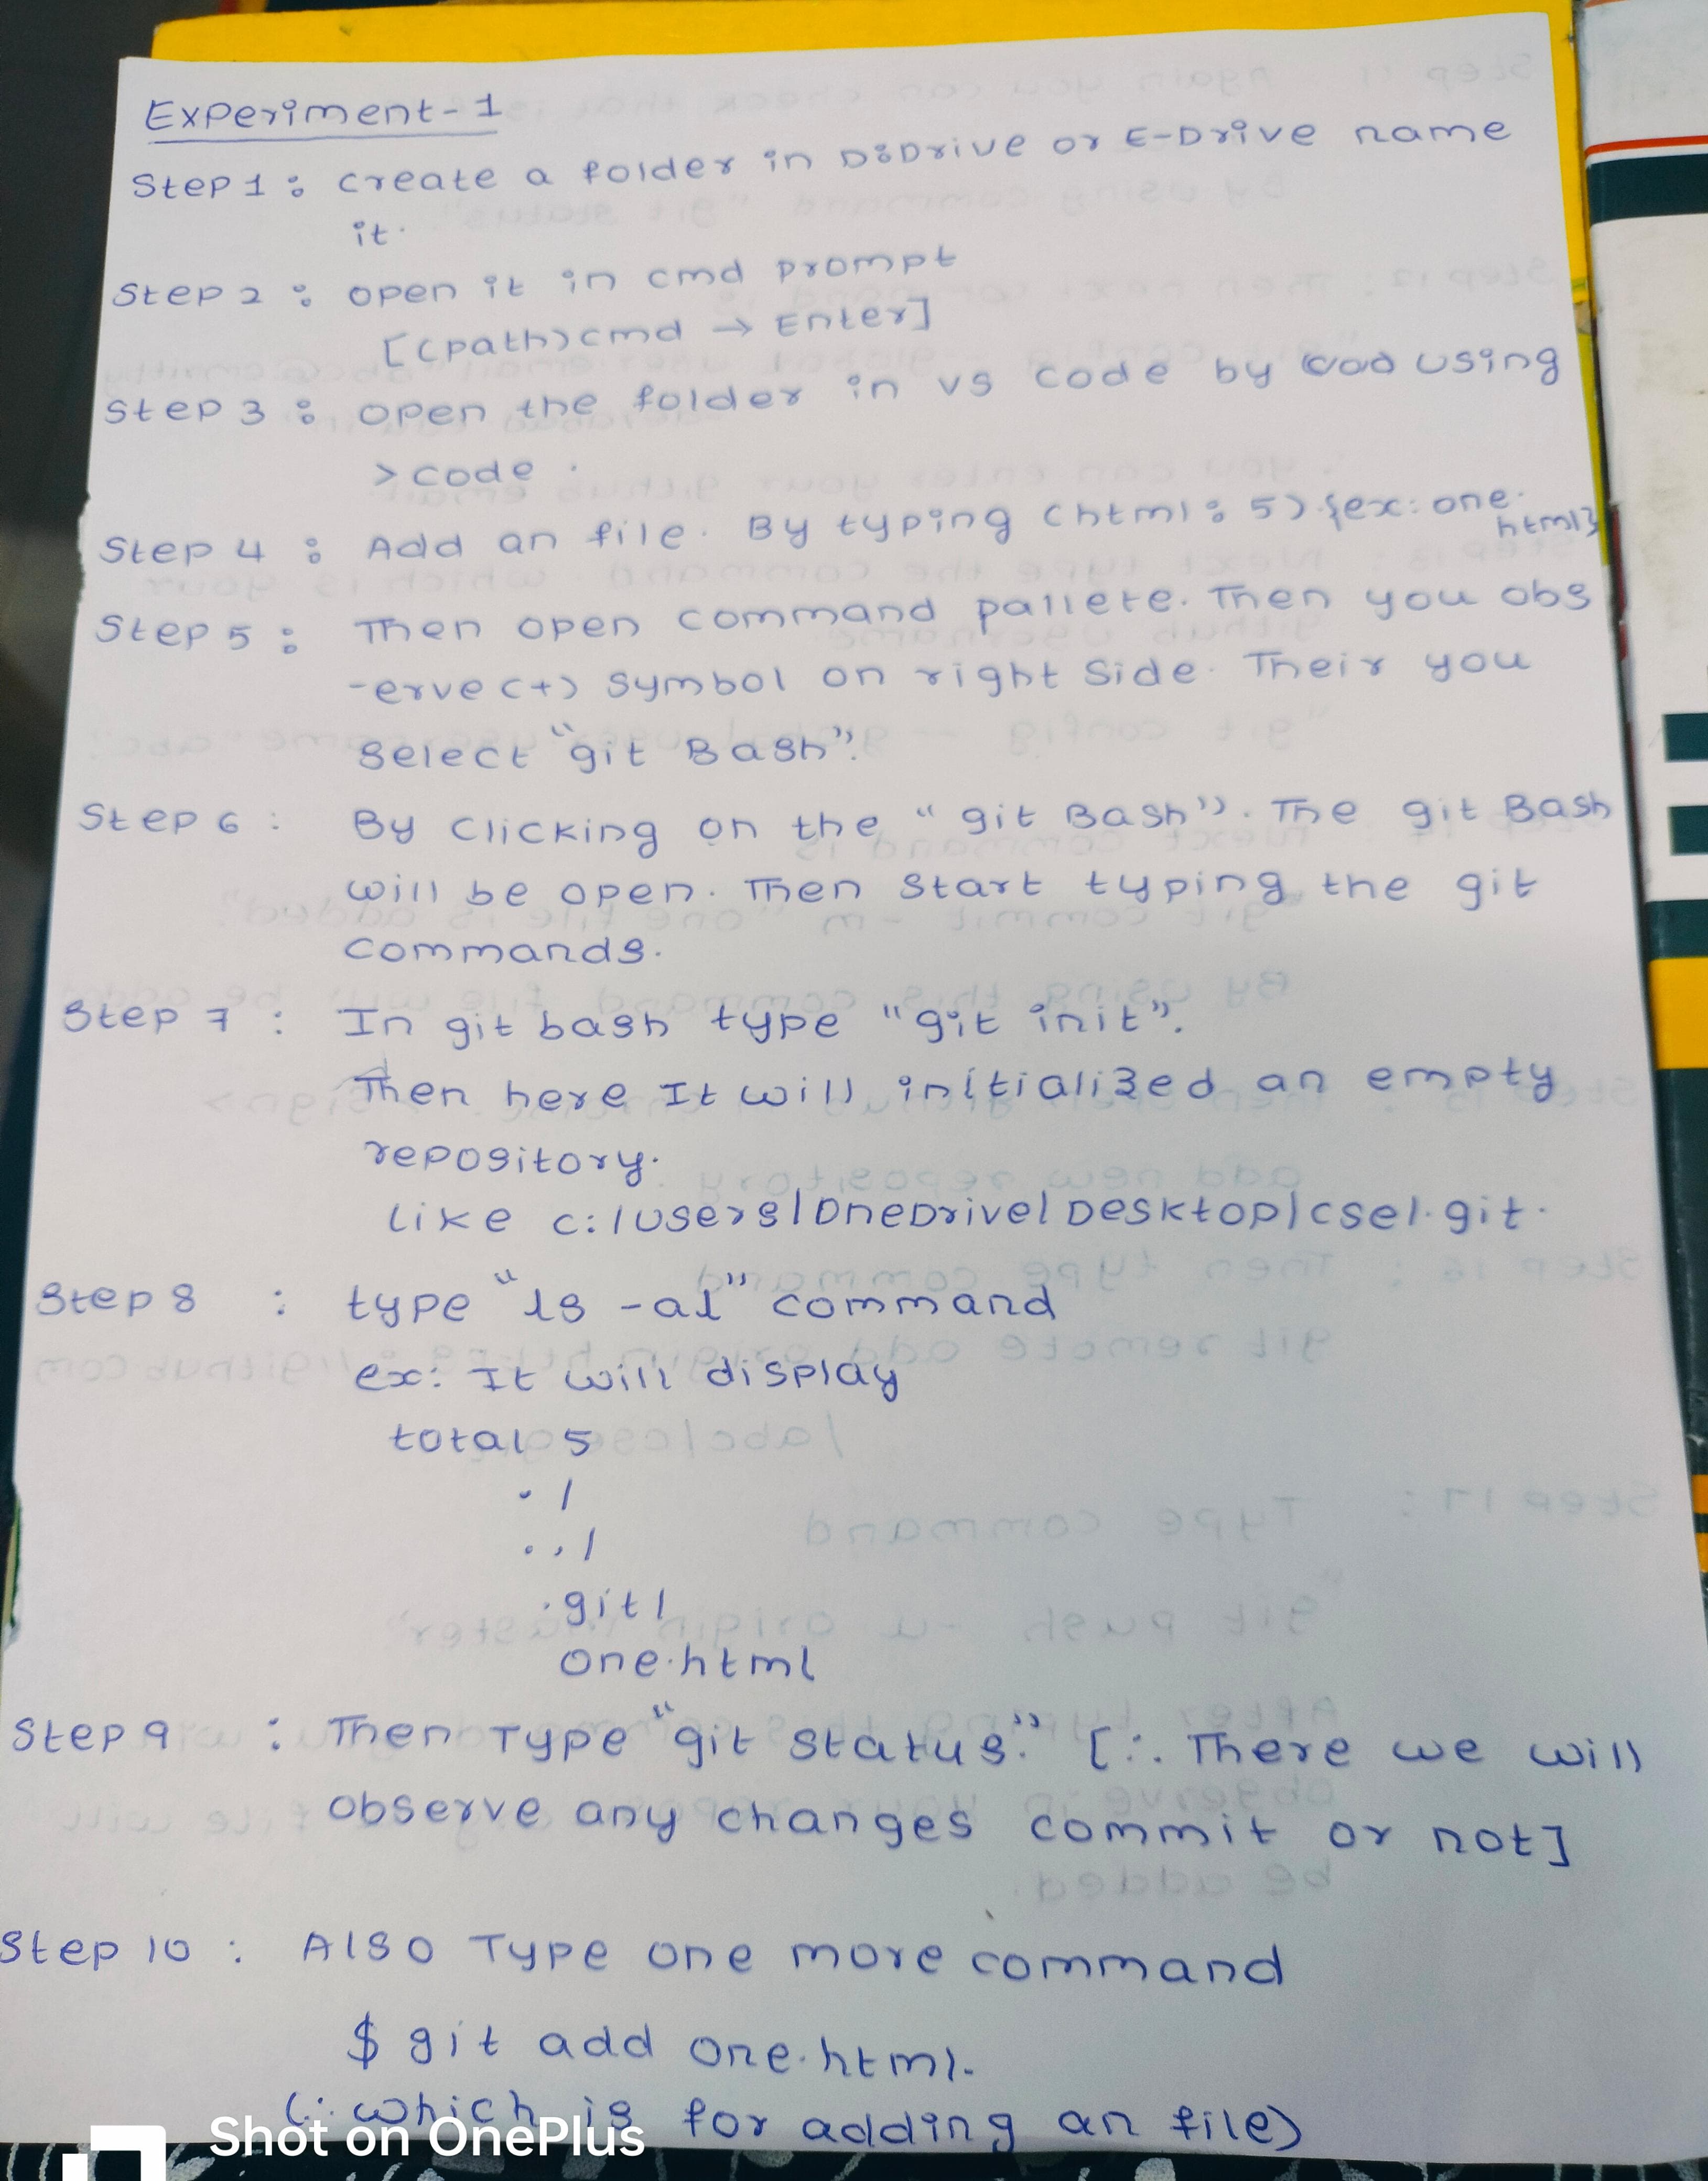 Experiment-1
Step 1 : create a folder in D:Drive or E-Drive name
it.
Step 2 : open it in cmd prompt
[(path)cmd → Enter]
Step 3 : open the folder in vs code by using
> code .
Step 4 : Add an file. By typing (html : 5) {ex: one.
html}
Step 5 : Then open command pallete. Then you obs
-erve (+) symbol on right side. Their you
select "git Bash".
Step 6 : By clicking on the "git Bash". The git Bash
will be open. Then start typing the git
commands.
Step 7 : In git bash type "git init".
Then here It will initialized an empty
repository.
like c:/users/OneDrive/Desktop/cse/.git.
Step 8 : type "ls -al" command
ex: It will display
total 5
./
../
.git/
one.html
Step 9 : Then Type "git status." [∴ There we will
observe any changes commit or not]
Step 10 : Also Type one more command
$ git add one.html.
(∴ which is for adding an file)
Shot on OnePlus